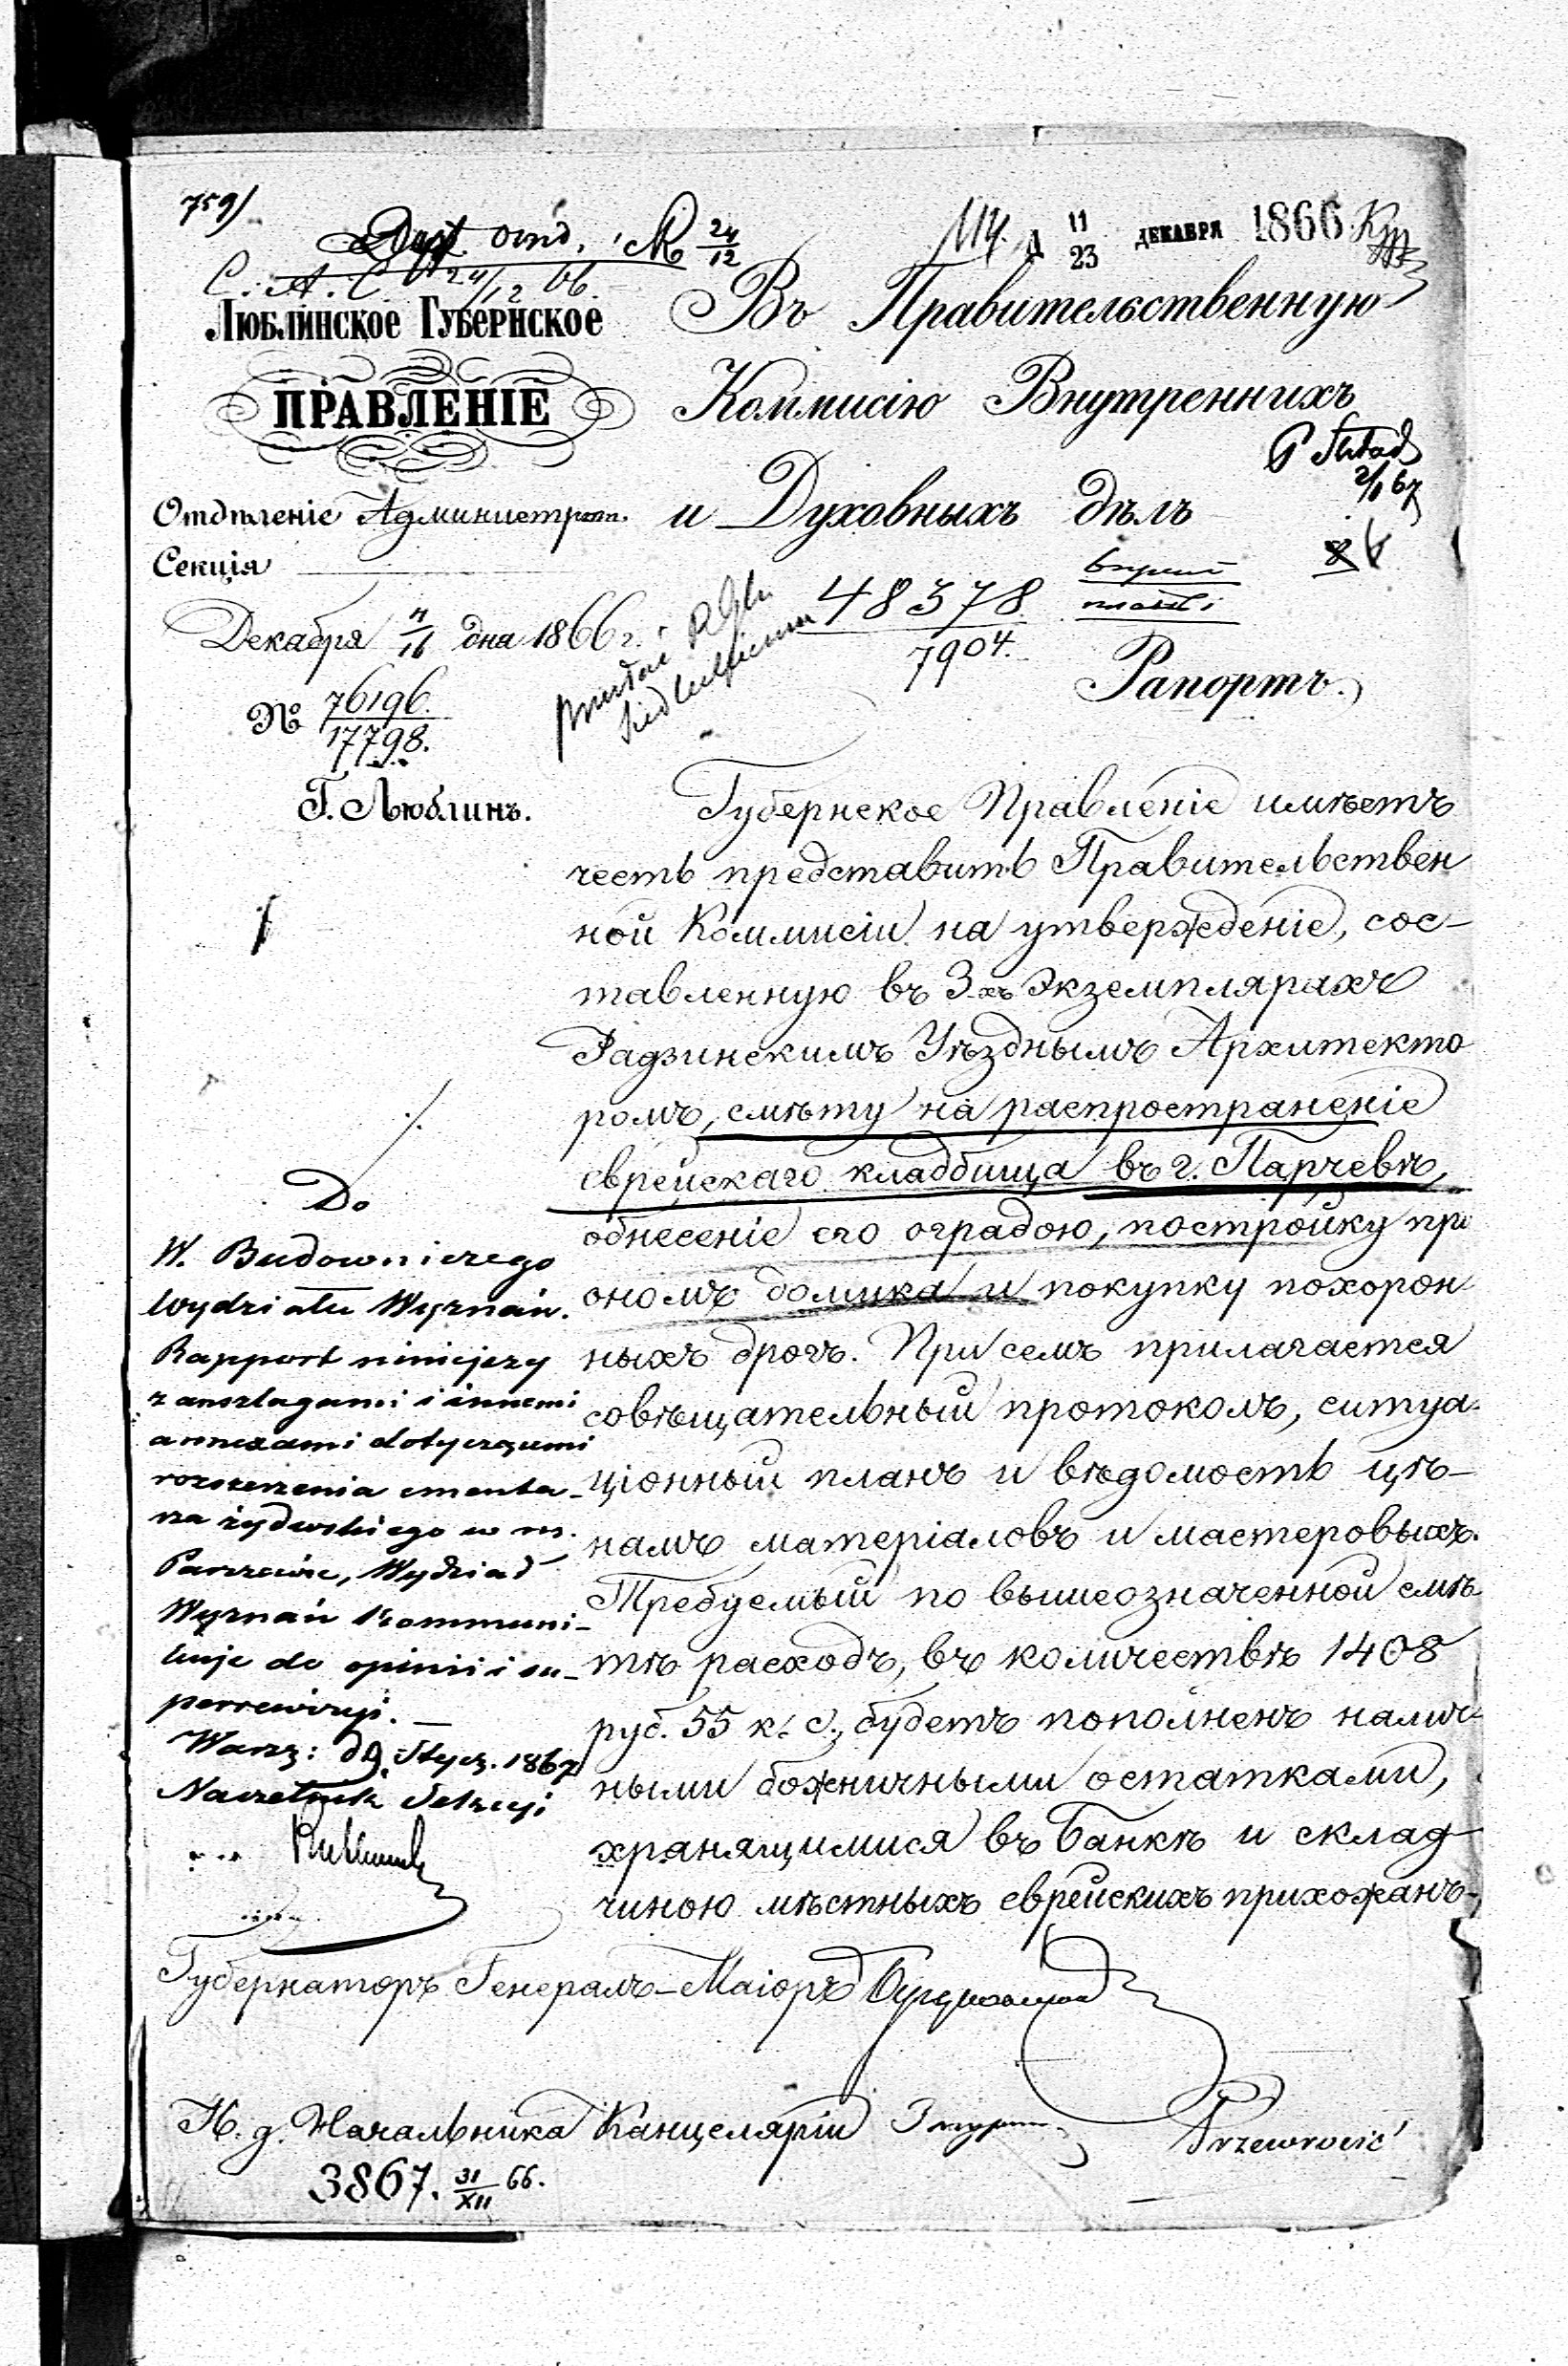 759)
отд. 24/12
С. А. С. 24/12 66.
11/23 ДЕКАБРЯ 1866
ЛЮБЛИНСКОЕ ГУБЕРНСКОЕ
ПРАВЛЕНІЕ
Отдѣленіе Администрат.
Секція
Декабря 4/16 дня 1866 г.
№ 76196./17798.
Г. Люблинъ.
Въ Правительственную
Коммисію Внутреннихъ
и Духовныхъ дѣлъ
2/1 67
48378
7904.
Рапортъ.
Губернское Правленіе имѣетъ
честь представить Правительствен
ной Коммисіи на утвержденіе, сос-
тавленную въ 3-хъ экземплярахъ
Радзинскимъ Уѣзднымъ Архитекто
ромъ, смѣту на распространеніе
еврейскаго кладбища въ г. Парчевѣ,
обнесеніе его оградою, постройку при
ономъ домика и покупку похорон
ныхъ дрогъ. При семъ прилагается
совѣщательный протоколъ, ситуа-
ціонный планъ и вѣдомость цѣ-
намъ матеріаловъ и мастеровыхъ.
Требуемый по вышеозначенной смѣ
тѣ расходъ, въ количествѣ 1408
руб. 55 к. с., будетъ пополненъ налич-
ными божничными остатками,
хранящимися въ Банкѣ и склад
чиною мѣстныхъ еврейскихъ прихожанъ.
Do
W. Budowniczego
Wydziału Wyznań.
Rapport niniejszy
z anszlagami i innemi
annexami dotyczącemi
rozszerzenia cmenta-
rza żydowskiego w m.
Parczewie, Wydział
Wyznań kommuni-
kuje do opinii i su-
perrewizyi. —
Warsz: d 9 Stycz. 1867
Naczelnik Sekcyi
Губернаторъ Генералъ-Маіоръ
И. д. Начальника Канцеляріи
3867. 31/XII 66.